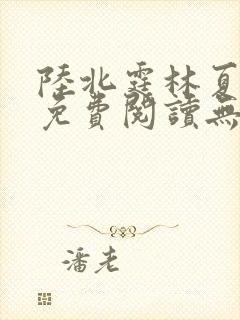 陸北霆林夏
免費閱讀無
潘老